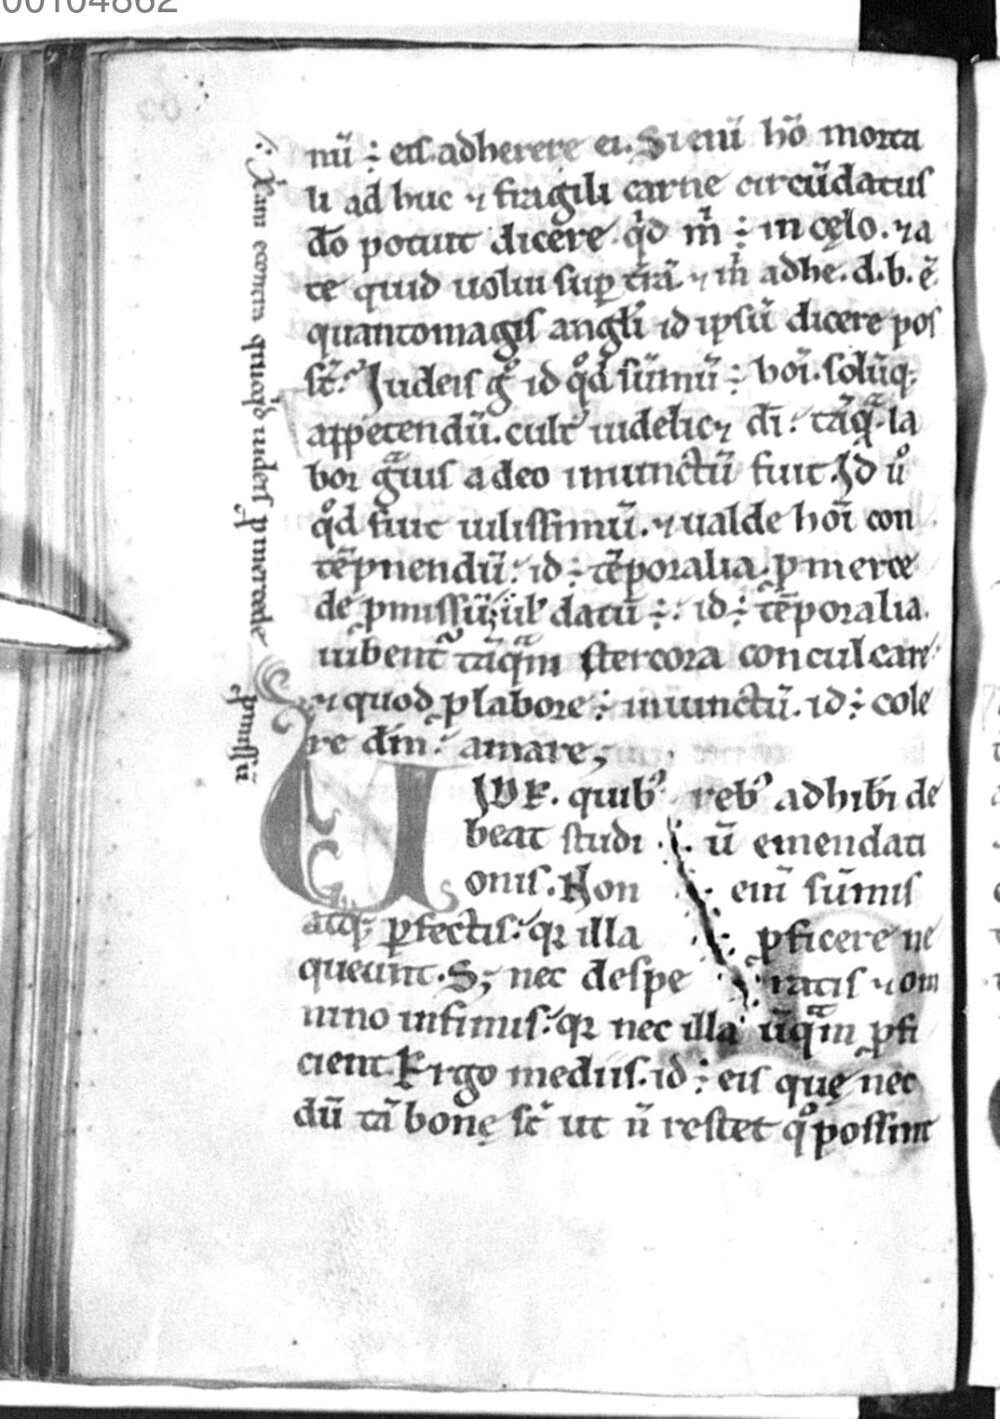 00104862
nū ÷ eis adherere ei. Si enī hō morta
li ad huc ⁊ fragili carne circūdatus
dō potuit dicere. qͥd m̄ ÷ in cęlo. ⁊ a
te quid uolui sup t̄rā. ⁊ m̄ adhe. d. b. ē
quanto magis angl̄i id ipsū dicere pos
st̄. Iudeis gͦ id qͦd sūmū ÷ hoī. solūq;
appetendū. cult' iudelicꝫ dī. tāqͣ la
bor gͣuis a deo iniunctū fuit. Id uͦ
qͦd fuit uilissimū. ⁊ ualde hoī con
tēpnendū. id ÷ tēporalia. ꝓ merce
de ꝓmissū; ul' datū ÷. id ÷ tēporalia.
iubent' tāqͣm stercora conculcari.
⁊ quod ꝓ labore ÷ iniunctū. id ÷ cole
re dm̄. amare;
VIDE. quib' reb' adhib̄i de
beat studi ū emendati
onis. Non enī sūmis
atq; ꝑfectis. qꝛ illa ꝓficere ne
queunt. S; nec despe ratis ⁊ om
nino infimis. qꝛ nec illa ūqͣm ꝓfi
cient. Ergo mediis. id ÷ eis quę nec
dū tā bonę st̄ ut ñ restet qͦ possint
quod iudeis ꝓ mercede
ꝓmissū